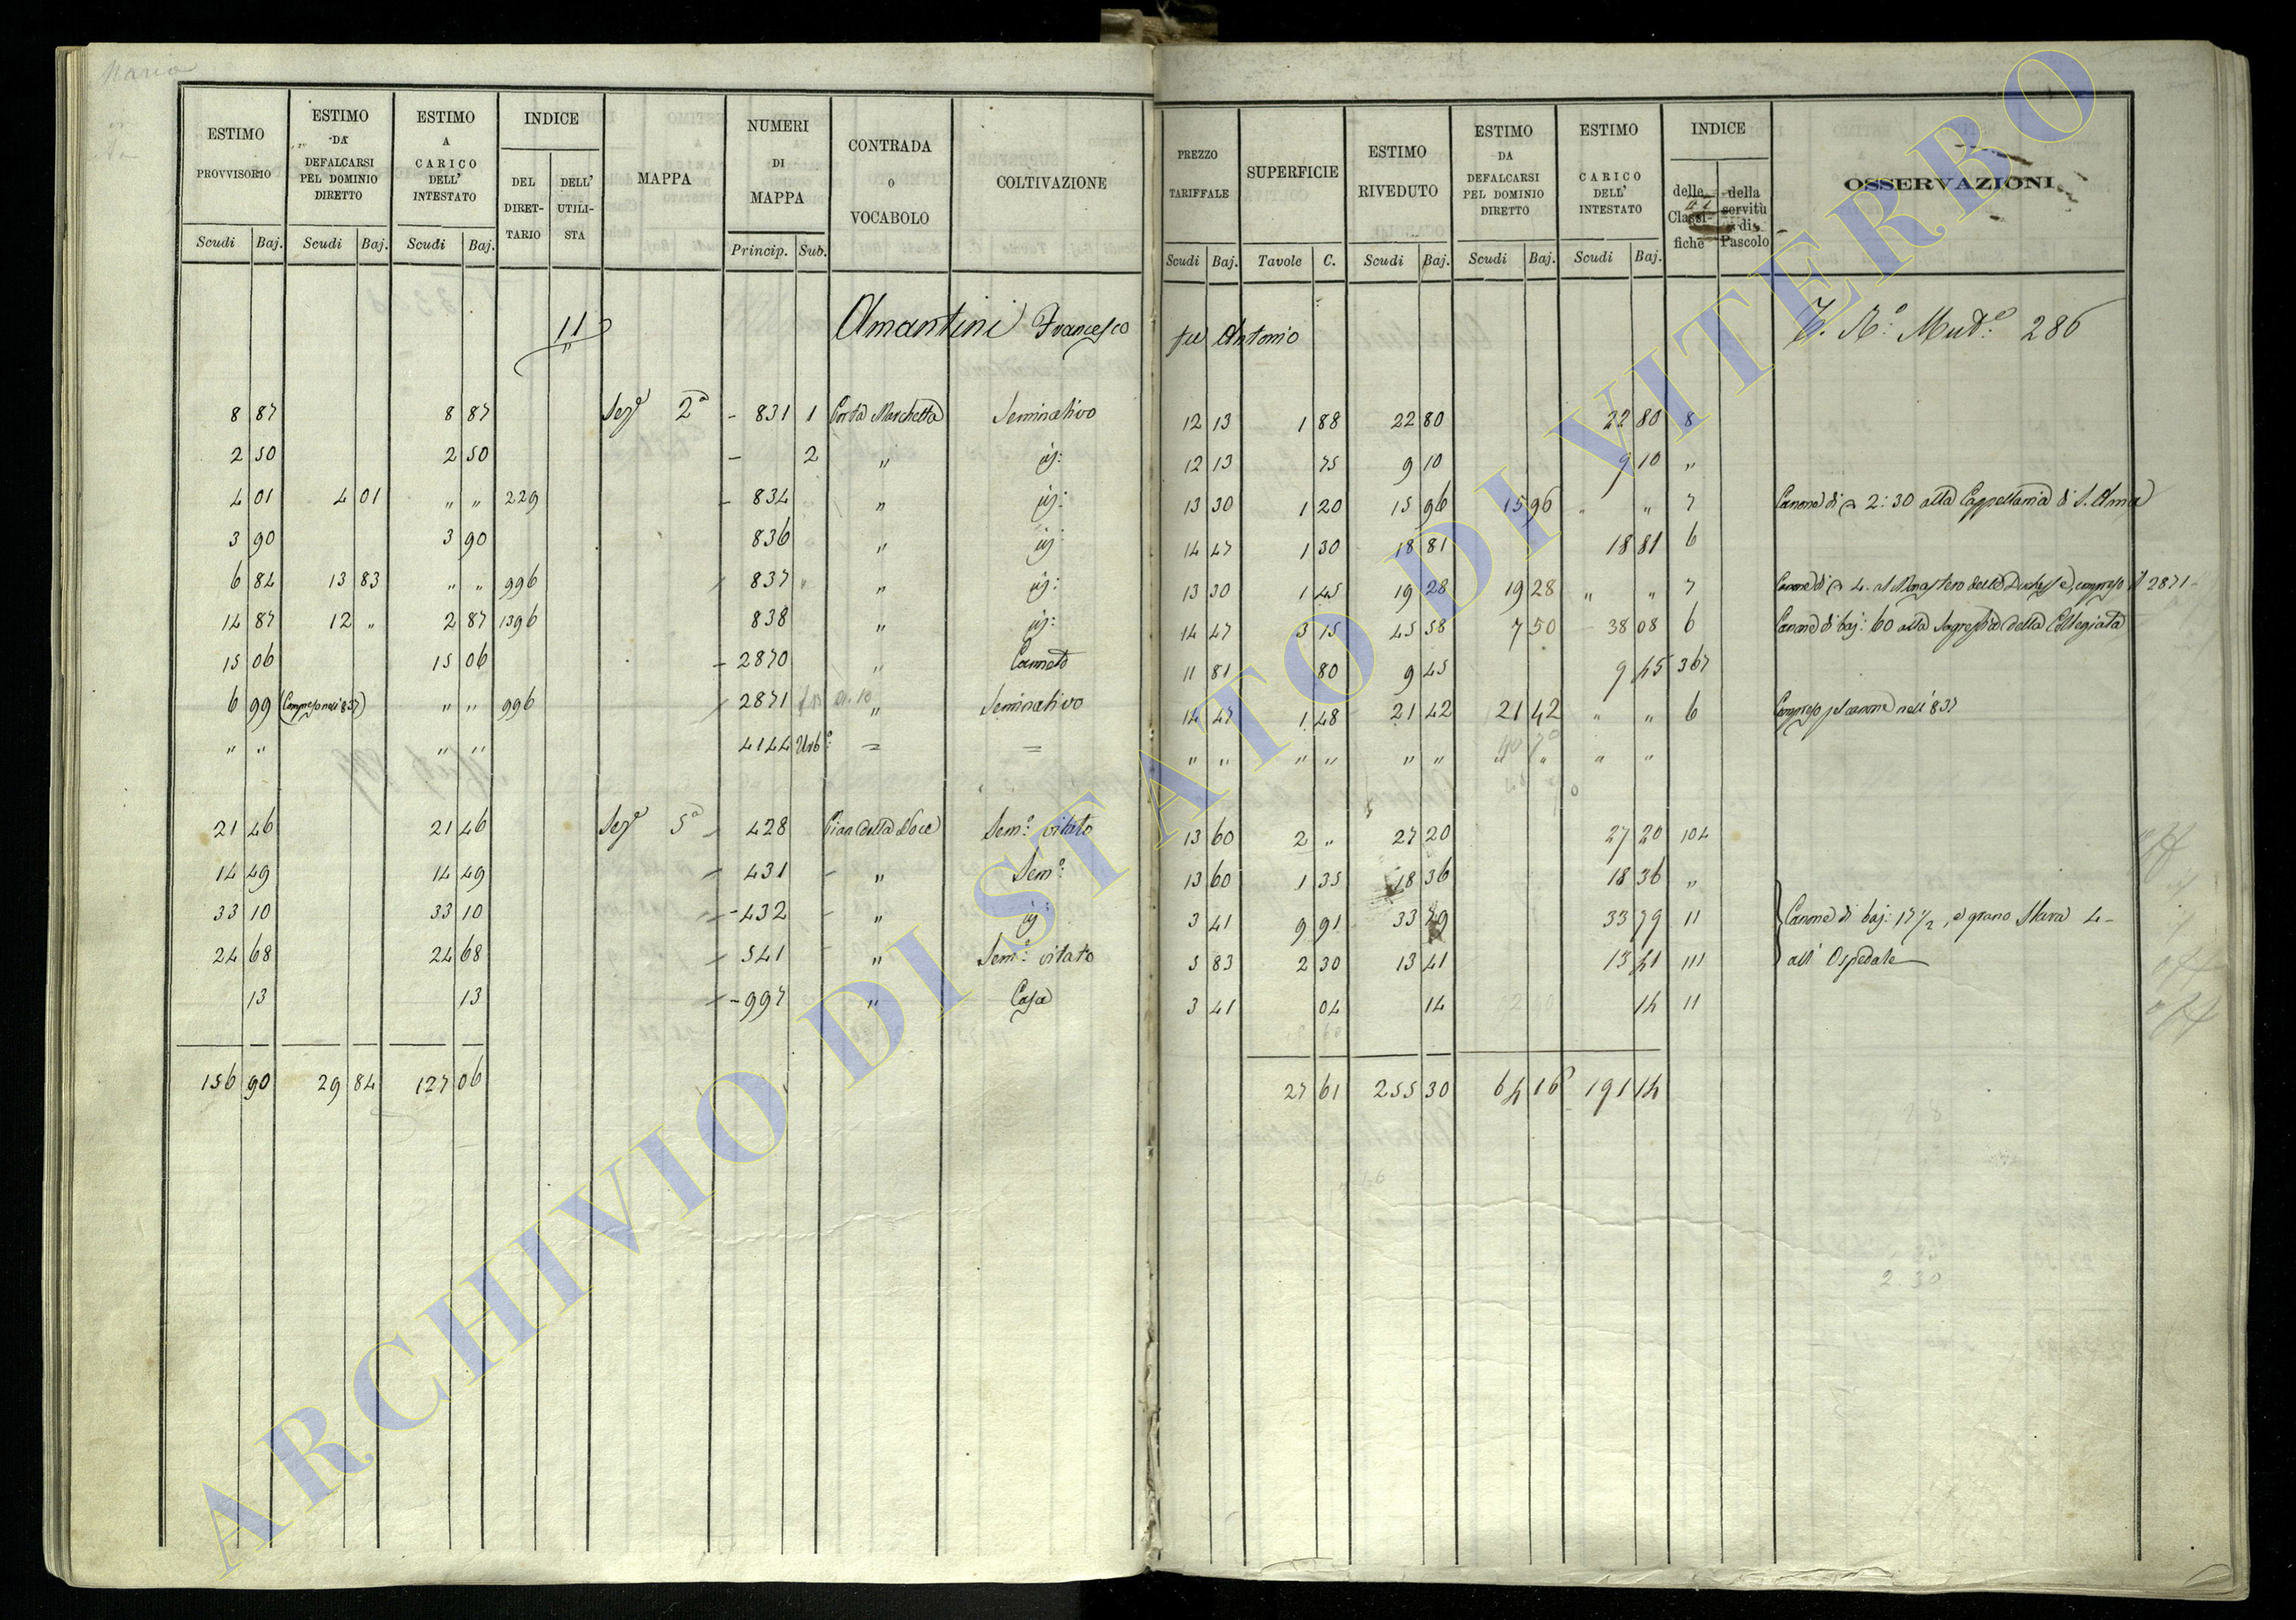 ESTIMO PROVVISORIO Scudi Baj.
ESTIMO DA DEFALCARSI PEL DOMINIO DIRETTO Scudi Baj.
ESTIMO A CARICO DELL' INTESTATO Scudi Baj.
INDICE DEL DIRET-TARIO DELL' UTILI-STA
MAPPA
NUMERI DI MAPPA Princip. Sub.
CONTRADA O VOCABOLO
COLTIVAZIONE
PREZZO TARIFFALE Scudi Baj.
SUPERFICIE Tavole C.
ESTIMO RIVEDUTO Scudi Baj.
ESTIMO DA DEFALCARSI PEL DOMINIO DIRETTO Scudi Baj.
ESTIMO A CARICO DELL' INTESTATO Scudi Baj.
INDICE delle Classi-fiche della servitù di Pascolo
OSSERVAZIONI
11 Amantini Francesco fu Antonio 286
8 87 8 87 Sez.e 2a - 831 1 Porta Marchetta Seminativo 12 13 1 88 22 80 22 80 8
2 50 2 50 - 2 " id: 12 13 75 9 10 9 10 "
4 01 4 01 " " 229 - 834 " id: 13 30 1 20 15 96 15 96 " " 7 Canone di 2:30 alla Cappellania di S. Anna
3 90 3 90 836 " id: 14 47 1 30 18 81 18 81 6
6 82 13 83 " " 996 837 " id: 13 30 1 45 19 28 19 28 " " 7 Canone di 4. al Monastero della Duchessa, compreso il 2871
14 87 12 " 2 87 1396 838 " id: 14 47 3 15 45 58 7 50 38 08 6 Canone di baj: 60 alla Sagrestia della Collegiata
15 06 15 06 - 2870 " Canneto 11 81 80 9 45 9 45 367
6 99 (Compreso nel 837) " " 996 2871 " Seminativo 14 47 1 48 21 42 21 42 " " 6 Compreso pel canone nell' 837
" " " " 4144 Urb.o = = " " " " " " " " " "
21 46 21 46 Sez.e 5a 428 Pian della Noce Sem.o vitato 13 60 2 " 27 20 27 20 104
14 49 14 49 431 " Sem.o 13 60 1 35 18 36 18 36 "
33 10 33 10 - 432 " id: 3 41 9 91 33 79 33 79 11 Canone di baj: 17 1/2, e grano Stara 4-
24 68 24 68 541 " Sem.o vitato 5 83 2 30 13 41 13 41 111 all' Ospedale
13 13 - 997 " Casa 3 41 04 14 14 11
156 90 29 84 127 06 27 61 255 30 64 16 191 14
2.30
ARCHIVIO DI STATO DI VITERBO